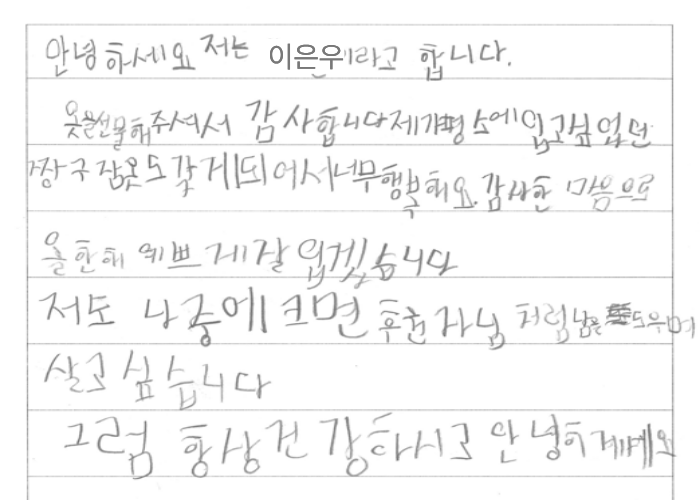 안녕하세요 저는 이은우라고 합니다.
옷을선물해주셔서 감사합니다제가평소에입고싶었던
짱구잠옷도갖게되어서너무행복해요.감사한 마음으로
올한해 예쁘게잘 입겠습니다
저도 나중에크면 후원자님 처럼남을 도우며
살고싶습니다
그럼 항상건강하시고 안녕히계세요